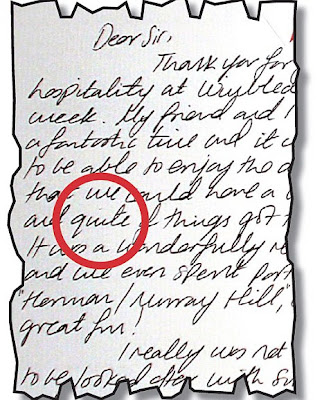 Dear Sir,
Thank you for
hospitality at Wimbled
week. My friend and I
a fantastic time and it
to be able to enjoy the
that we could have a
and quite if things got t
It was a wonderfully re
and we even spent part
"Henman / Murray Hill,"
great fun!
I really was not
to be looked after with su